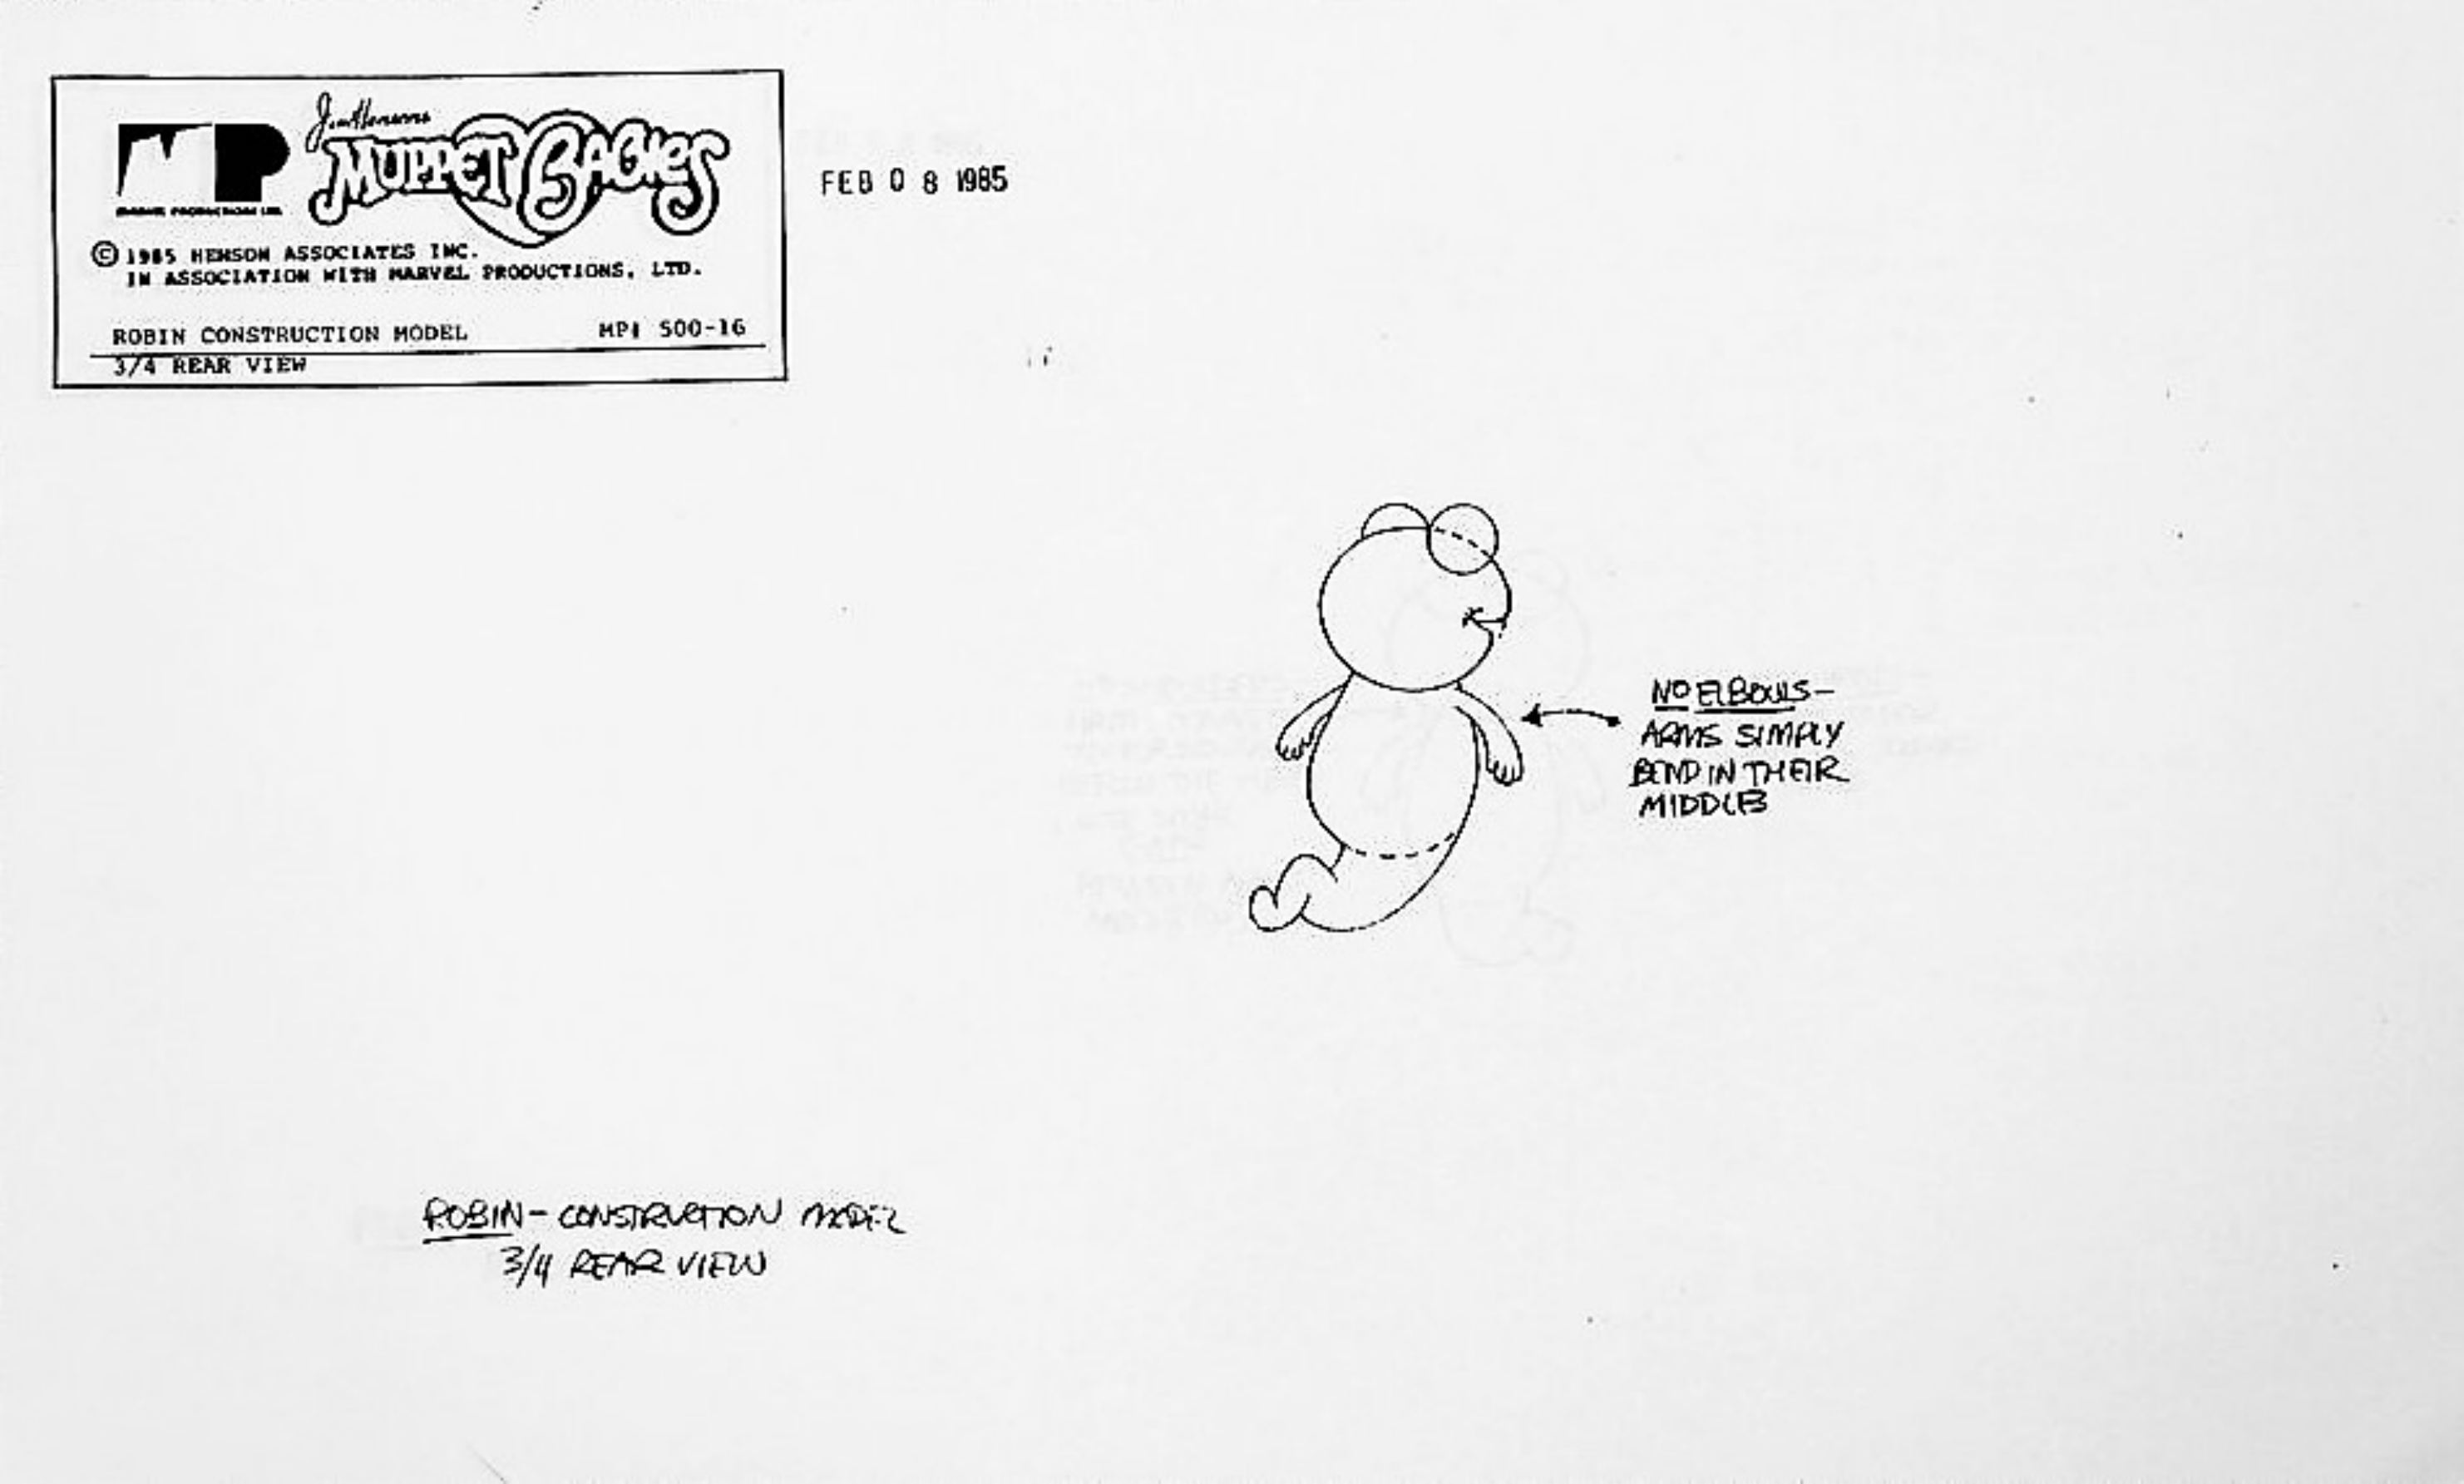 Jim Henson's
MUPPET BABIES
MARVEL PRODUCTIONS LTD.
© 1985 HENSON ASSOCIATES INC.
IN ASSOCIATION WITH MARVEL PRODUCTIONS, LTD.
ROBIN CONSTRUCTION MODEL MP# 500-16
3/4 REAR VIEW
FEB 08 1985
NO ELBOWS-
ARMS SIMPLY
BEND IN THEIR
MIDDLES
ROBIN - CONSTRUCTION MODEL
3/4 REAR VIEW